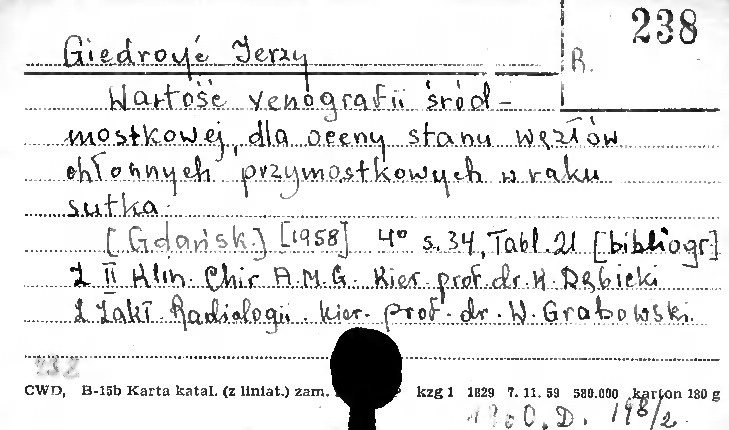 238
R.
Giedroyć Jerzy
Wartość venografii śród-
mostkowej, dla oceny stanu węzłów
chłonnych przymostkowych w raku
sutka.
[Gdańsk.] [1958] 4° s. 34, Tabl. 21 [bibliogr]
Z II Klin. Chir A.M.G. Kier. prof. dr. K. Dębicki
Z Zakł. Radiologii. kier. prof. dr. W. Grabowski.
232
CWD, B-15b Karta katal. (z liniat.) zam. kzg 1 1829 7. 11. 59 580.000 karton 180 g